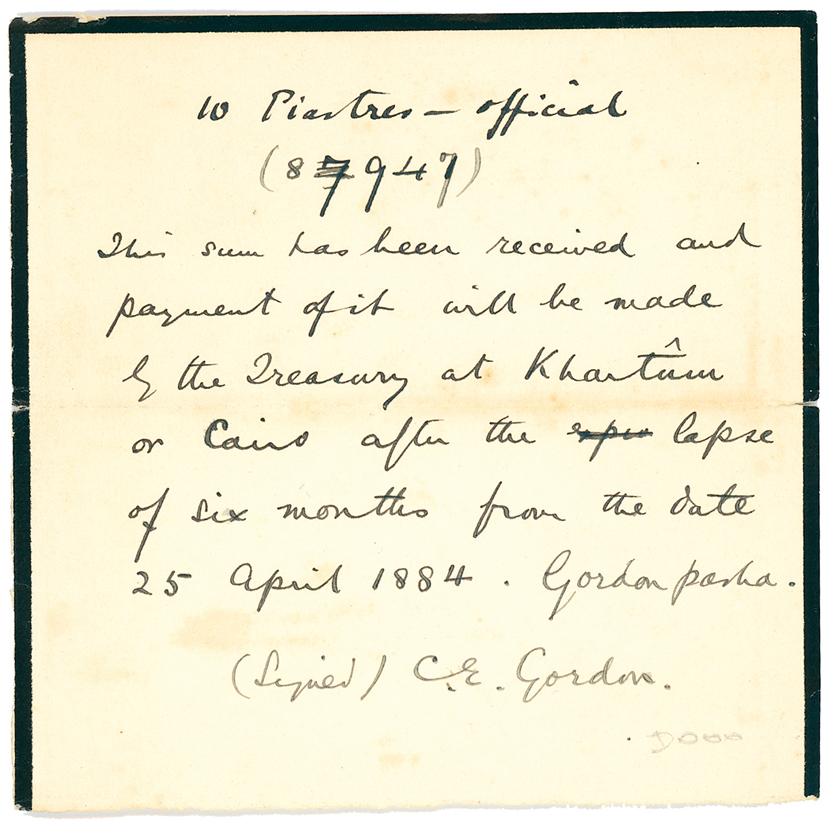 10 Piastres – official
(87947)
This sum has been received and
payment of it will be made
by the Treasury at Khartûm
or Cairo after the lapse
of six months from the date
25 April 1884. Gordon pasha.
(Signed) C.E. Gordon.